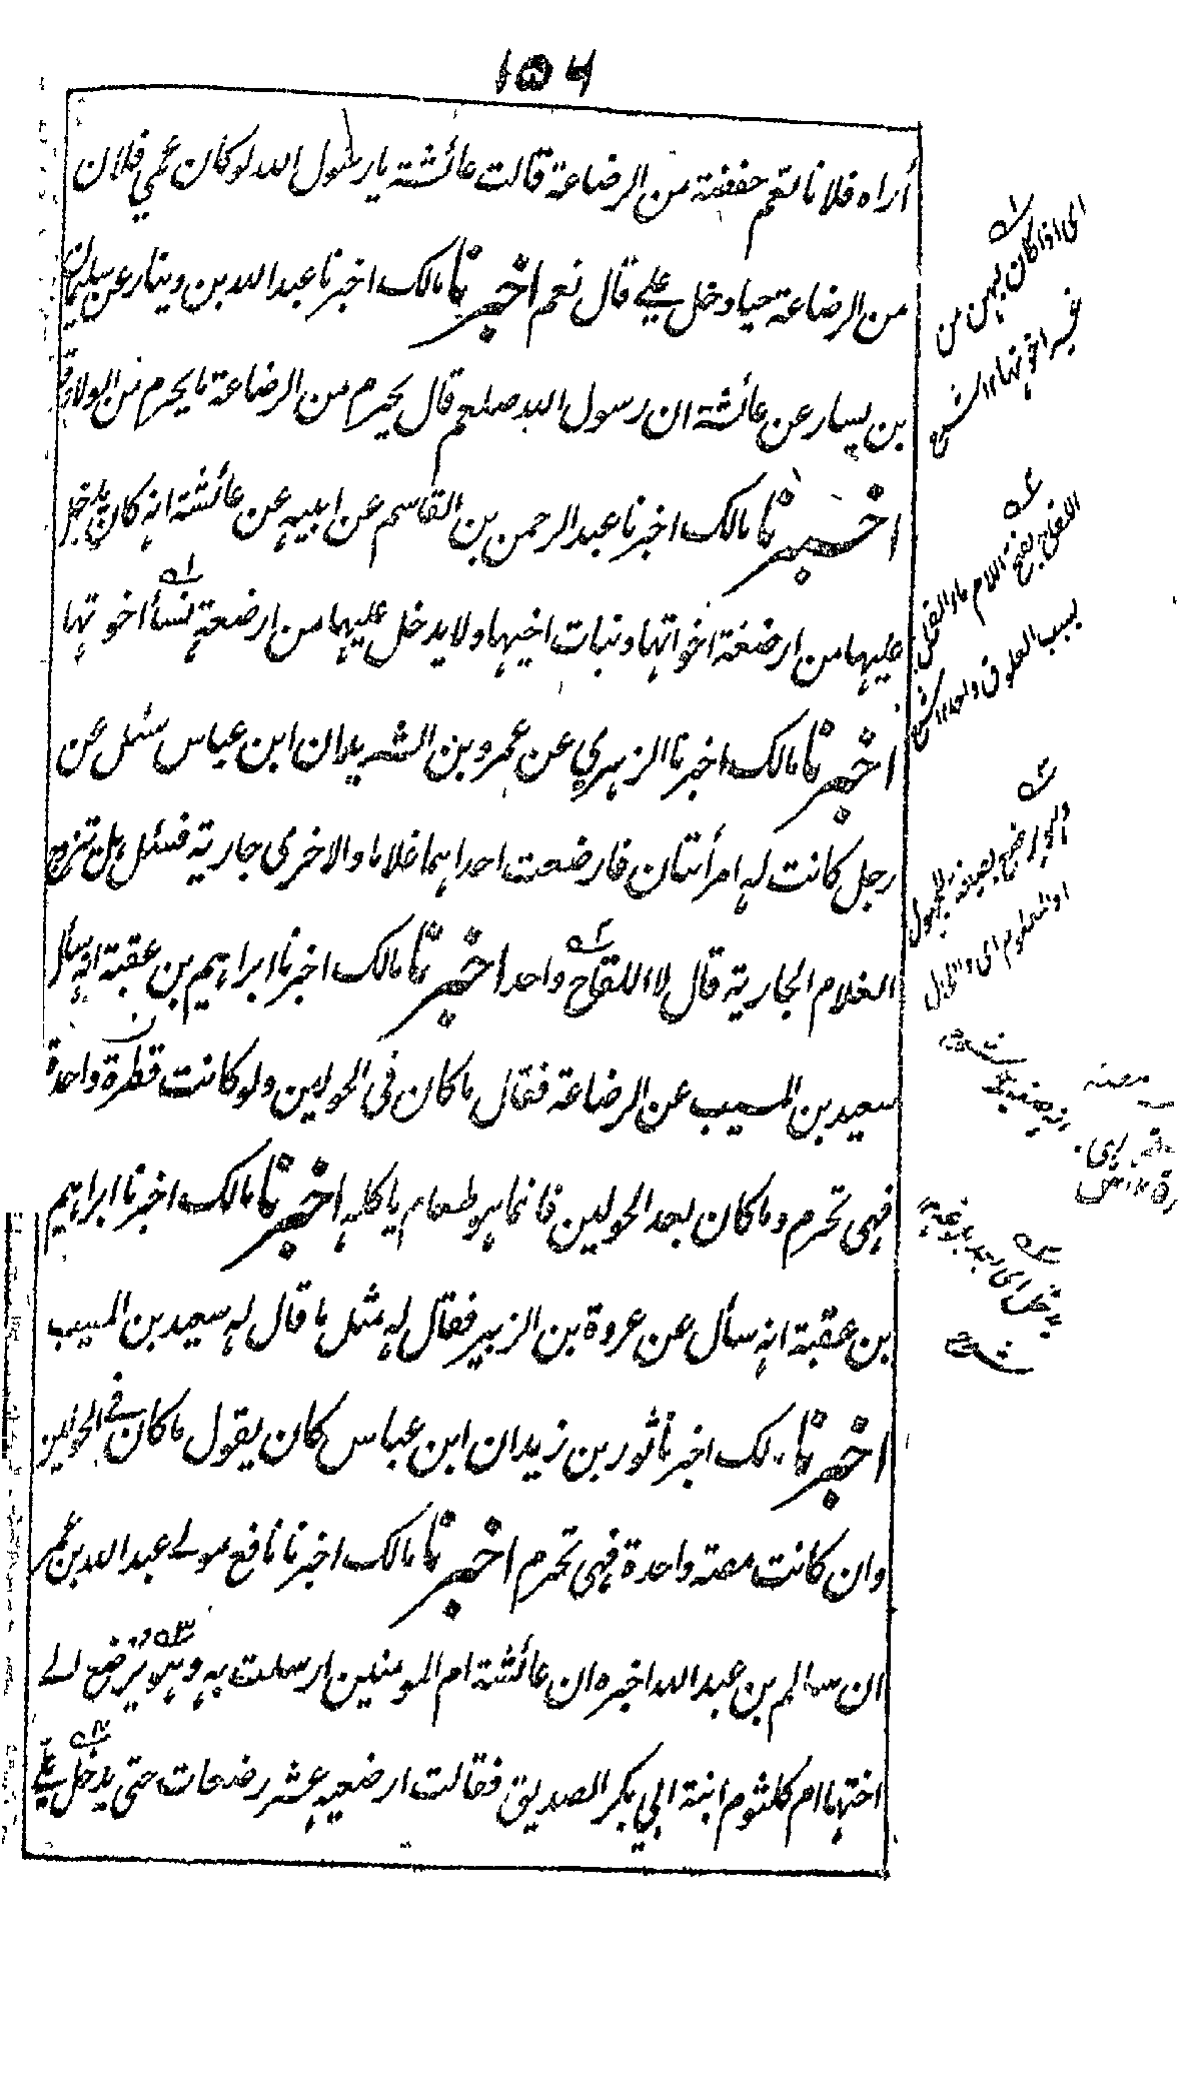 ١٥٦
أراه فلانا لعم حفصة من الرضاعة قالت عائشة يا رسول الله لو كان عمي فلان
من الرضاعة حيا دخل علي قال نعم اخبرنا مالك اخبرنا عبد الله بن دينار عن سليمان
بن يسار عن عائشة ان رسول الله صلعم قال يحرم من الرضاعة ما يحرم من الولادة
اخبرنا مالك اخبرنا عبد الرحمن بن القاسم عن ابيه عن عائشة انه كان يدخل
عليها من ارضعة اخواتها وبنات اخيها ولا يدخل عليها من ارضعة نساء اخوتها
اخبرنا مالك اخبرنا الزهري عن عمرو بن الشريد ان ابن عباس سئل عن
رجل كانت له امرأتان فارضعت احداهما غلاما والاخرى جارية فسئل هل تتزوج
الغلام الجارية قال لا اللقاح واحد اخبرنا مالك اخبرنا ابراهيم بن عقبة انه سأل
سعيد بن المسيب عن الرضاعة فقال ما كان في الحولين ولو كانت قطرة واحدة
فهي تحرم وما كان بعد الحولين فانما هو طعام ياكله اخبرنا مالك اخبرنا ابراهيم
بن عقبة انه سأل عن عروة بن الزبير فقال له مثل ما قال له سعيد بن المسيب
اخبرنا مالك اخبرنا ثور بن زيد ان ابن عباس كان يقول ما كان في الحولين
وان كانت مصة واحدة فهي تحرم اخبرنا مالك اخبرنا نافع مولے عبد الله بن عمر
ان سالم بن عبد الله اخبره ان عائشة ام المومنين ارسلت به وهو يرضع الے
اختها ام كلثوم ابنة ابي بكر الصديق فقالت ارضعيه عشر رضعات حتى يدخل علي
اى اذا كان بهن من
غير اخوتها ١٢ شرح
اللقاح بفتح اللام ماء الفحل
بسبب العلوق واحد ١٢ شرح